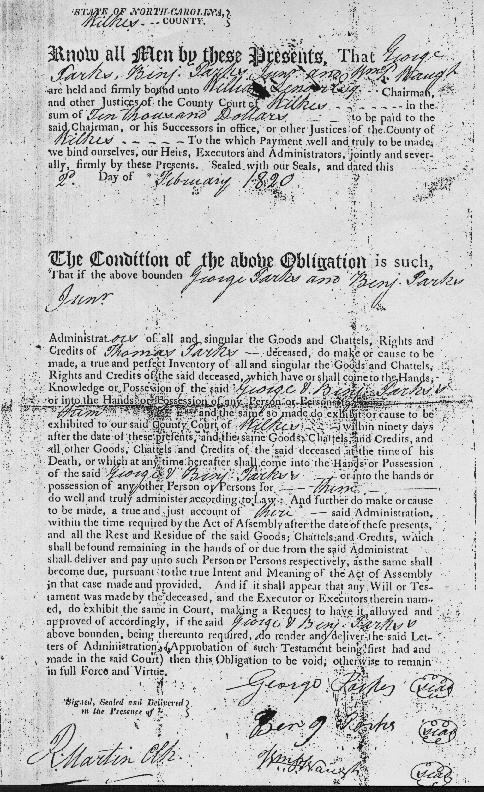 STATE OF NORTH-CAROLINA,
Wilkes COUNTY.
Know all Men by these Presents, That George
Parks, Benj. Parks, Junr and Wm P. Waugh
are held and firmly bound unto William Lenoir Esq Chairman,
and other Justices of the County Court of Wilkes in the
sum of Ten thousand Dollars to be paid to the
said Chairman, or his Successors in office, or other Justices of the County of
Wilkes To the which Payment well and truly to be made,
we bind ourselves, our Heirs, Executors and Administrators, jointly and sever-
ally, firmly by these Presents. Sealed with our Seals, and dated this
2d Day of February 1820
The Condition of the above Obligation is such,
That if the above bounden George Parks and Benj. Parks
Junr
Administrators of all and singular the Goods and Chattels, Rights and
Credits of Thomas Parks deceased, do make or cause to be
made, a true and perfect Inventory of all and singular the Goods and Chattels,
Rights and Credits of the said deceased, which have or shall come to the Hands,
Knowledge or Possession of the said George & Benj. Parks
or into the Hands or Possession of any Person or Persons for
them and the same so made do exhibit or cause to be
exhibited to our said County Court of Wilkes within ninety days
after the date of these presents, and the same Goods, Chattels and Credits, and
all other Goods, Chattels and Credits of the said deceased at the time of his
Death, or which at any time hereafter shall come into the Hands or Possession
of the said George & Benj. Parks or into the hands or
possession of any other Person or Persons for them
do well and truly administer according to Law: And further do make or cause
to be made, a true and just account of their said Administration,
within the time required by the Act of Assembly after the date of these presents,
and all the Rest and Residue of the said Goods, Chattels and Credits, which
shall be found remaining in the hands of or due from the said Administrat
shall deliver and pay unto such Person or Persons respectively, as the same shall
become due, pursuant to the true Intent and Meaning of the Act of Assembly
in that case made and provided. And if it shall appear that any Will or Tes-
tament was made by the deceased, and the Executor or Executors therein nam-
ed, do exhibit the same in Court, making a Request to have it allowed and
approved of accordingly, if the said George & Benj. Parks
above bounden, being thereunto required, do render and deliver the said Let-
ters of Administration, (Approbation of such Testament being first had and
made in the said Court) then this Obligation to be void; otherwise to remain
in full Force and Virtue.
George Parks (seal)
Signed, Sealed and Delivered
in the Presence of
Benj Parks (seal)
R. Martin Clk.
Wm P Waugh (seal)